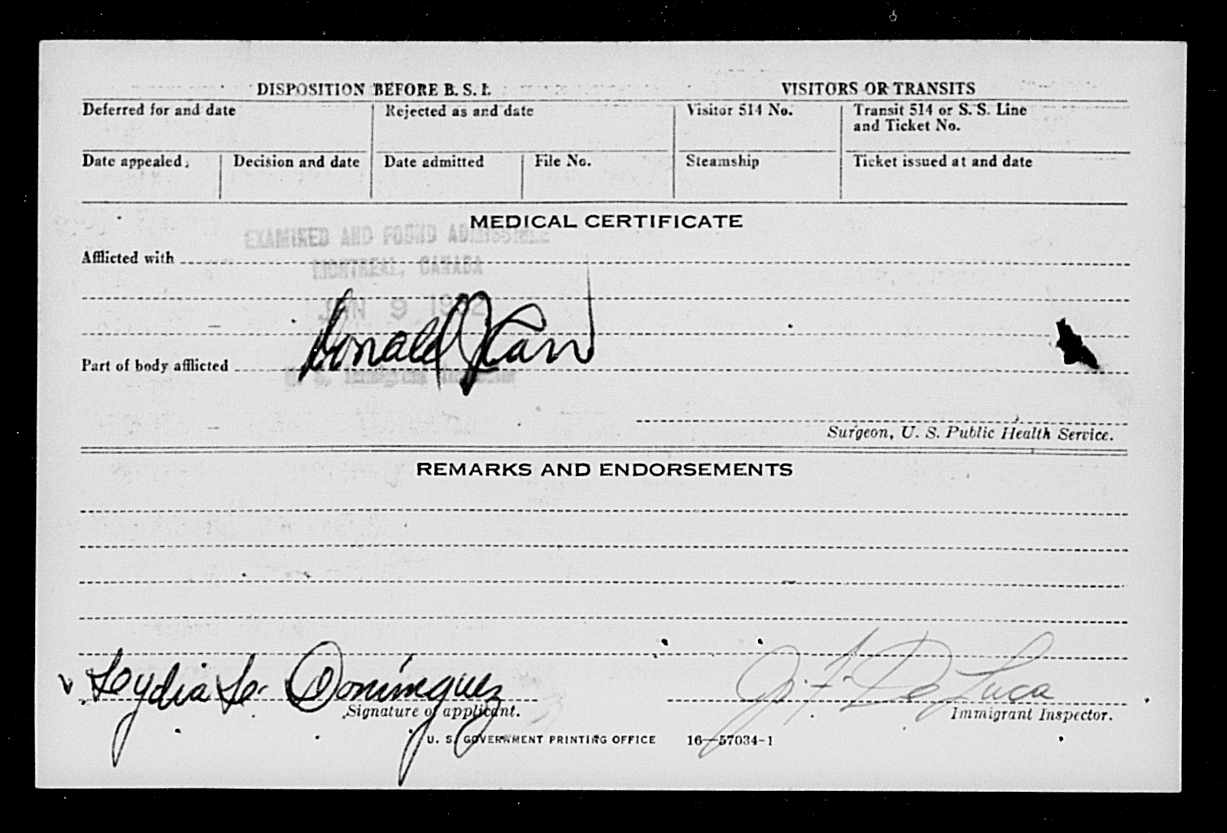 DISPOSITION BEFORE B. S. I. VISITORS OR TRANSITS
Deferred for and date Rejected as and date Visitor 514 No. Transit 514 or S. S. Line
and Ticket No.
Date appealed Decision and date Date admitted File No. Steamship Ticket issued at and date
MEDICAL CERTIFICATE
EXAMINED AND FOUND ADMISSIBLE
Afflicted with
MONTREAL, CANADA
JAN 9 1952
Donald J Carr
Part of body afflicted
U. S. Immigrant Inspector
Surgeon, U. S. Public Health Service.
REMARKS AND ENDORSEMENTS
Leydia Le Domínguez J. F. De Luca
Signature of applicant. Immigrant Inspector.
U. S. GOVERNMENT PRINTING OFFICE 16—57034-1